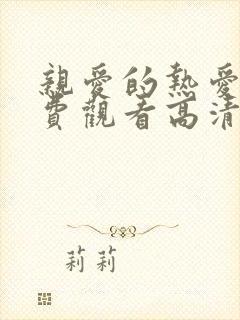 親愛的熱愛
費觀看高清
莉莉